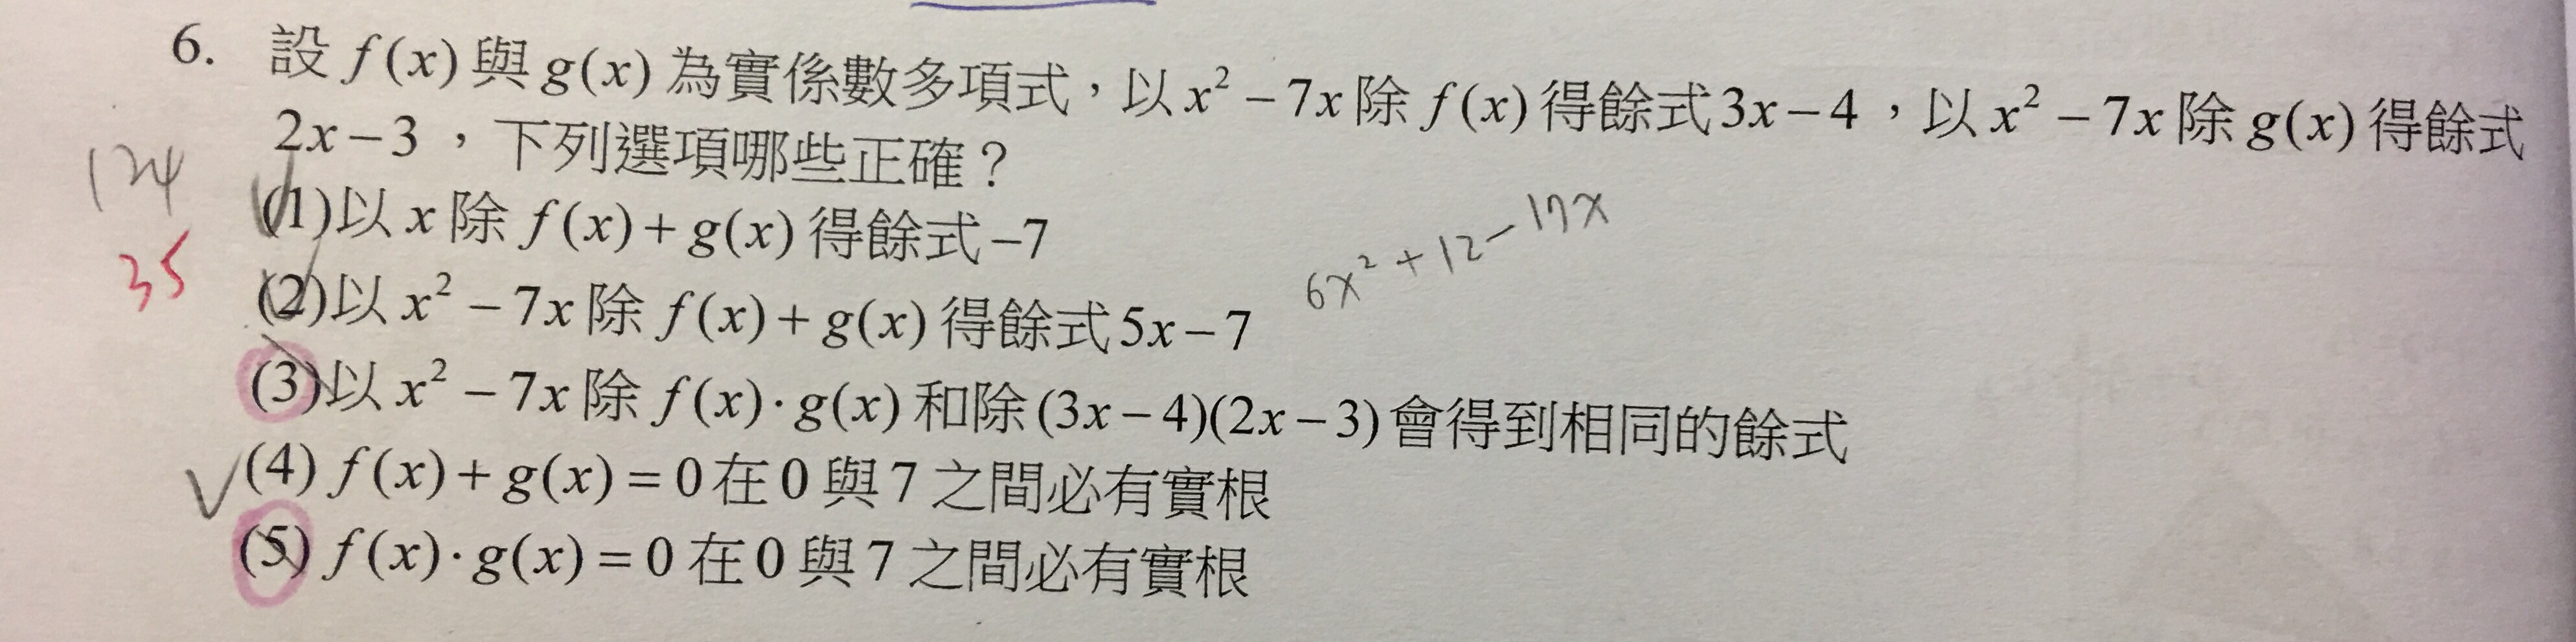 6. 設 f(x) 與 g(x) 為實係數多項式，以 x² − 7x 除 f(x) 得餘式 3x − 4 ，以 x² − 7x 除 g(x) 得餘式
2x − 3 ，下列選項哪些正確？
124
(1)以 x 除 f(x) + g(x) 得餘式 −7
35
(2)以 x² − 7x 除 f(x) + g(x) 得餘式 5x − 7
6x² + 12 − 17x
(3)以 x² − 7x 除 f(x)·g(x) 和除 (3x − 4)(2x − 3) 會得到相同的餘式
✓(4) f(x) + g(x) = 0 在 0 與 7 之間必有實根
(5) f(x)·g(x) = 0 在 0 與 7 之間必有實根